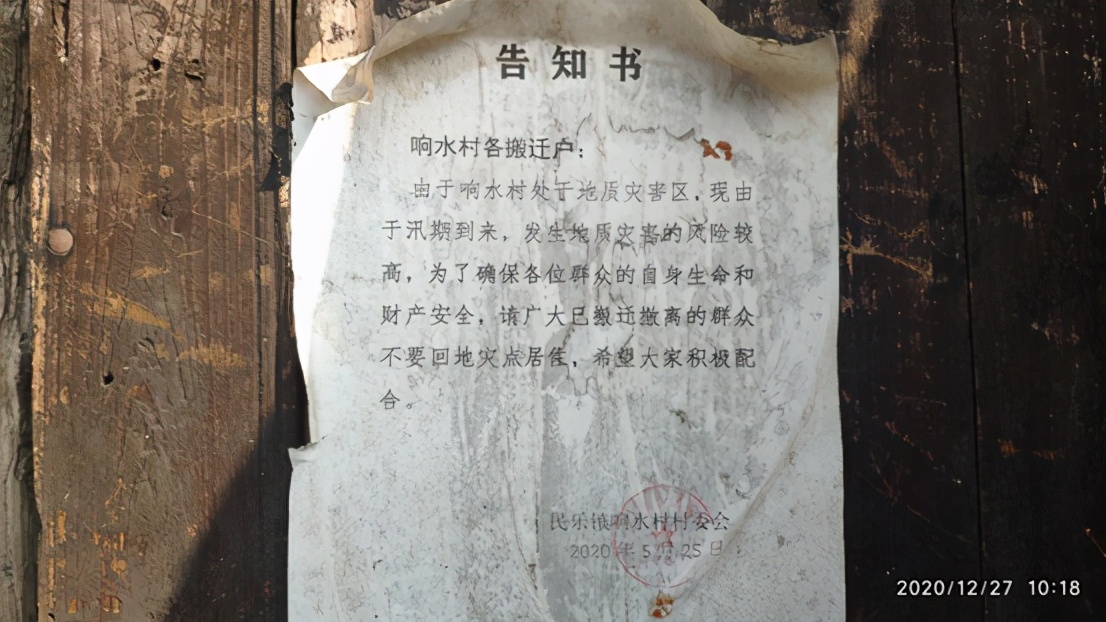 告知书
响水村各搬迁户：
由于响水村处于地质灾害区，现由
于汛期到来，发生地质灾害的风险较
高，为了确保各位群众的自身生命和
财产安全，请广大已搬迁撤离的群众
不要回地灾点居住，希望大家积极配
合。
民乐镇响水村村委会
2020年5月25日
2020/12/27 10:18